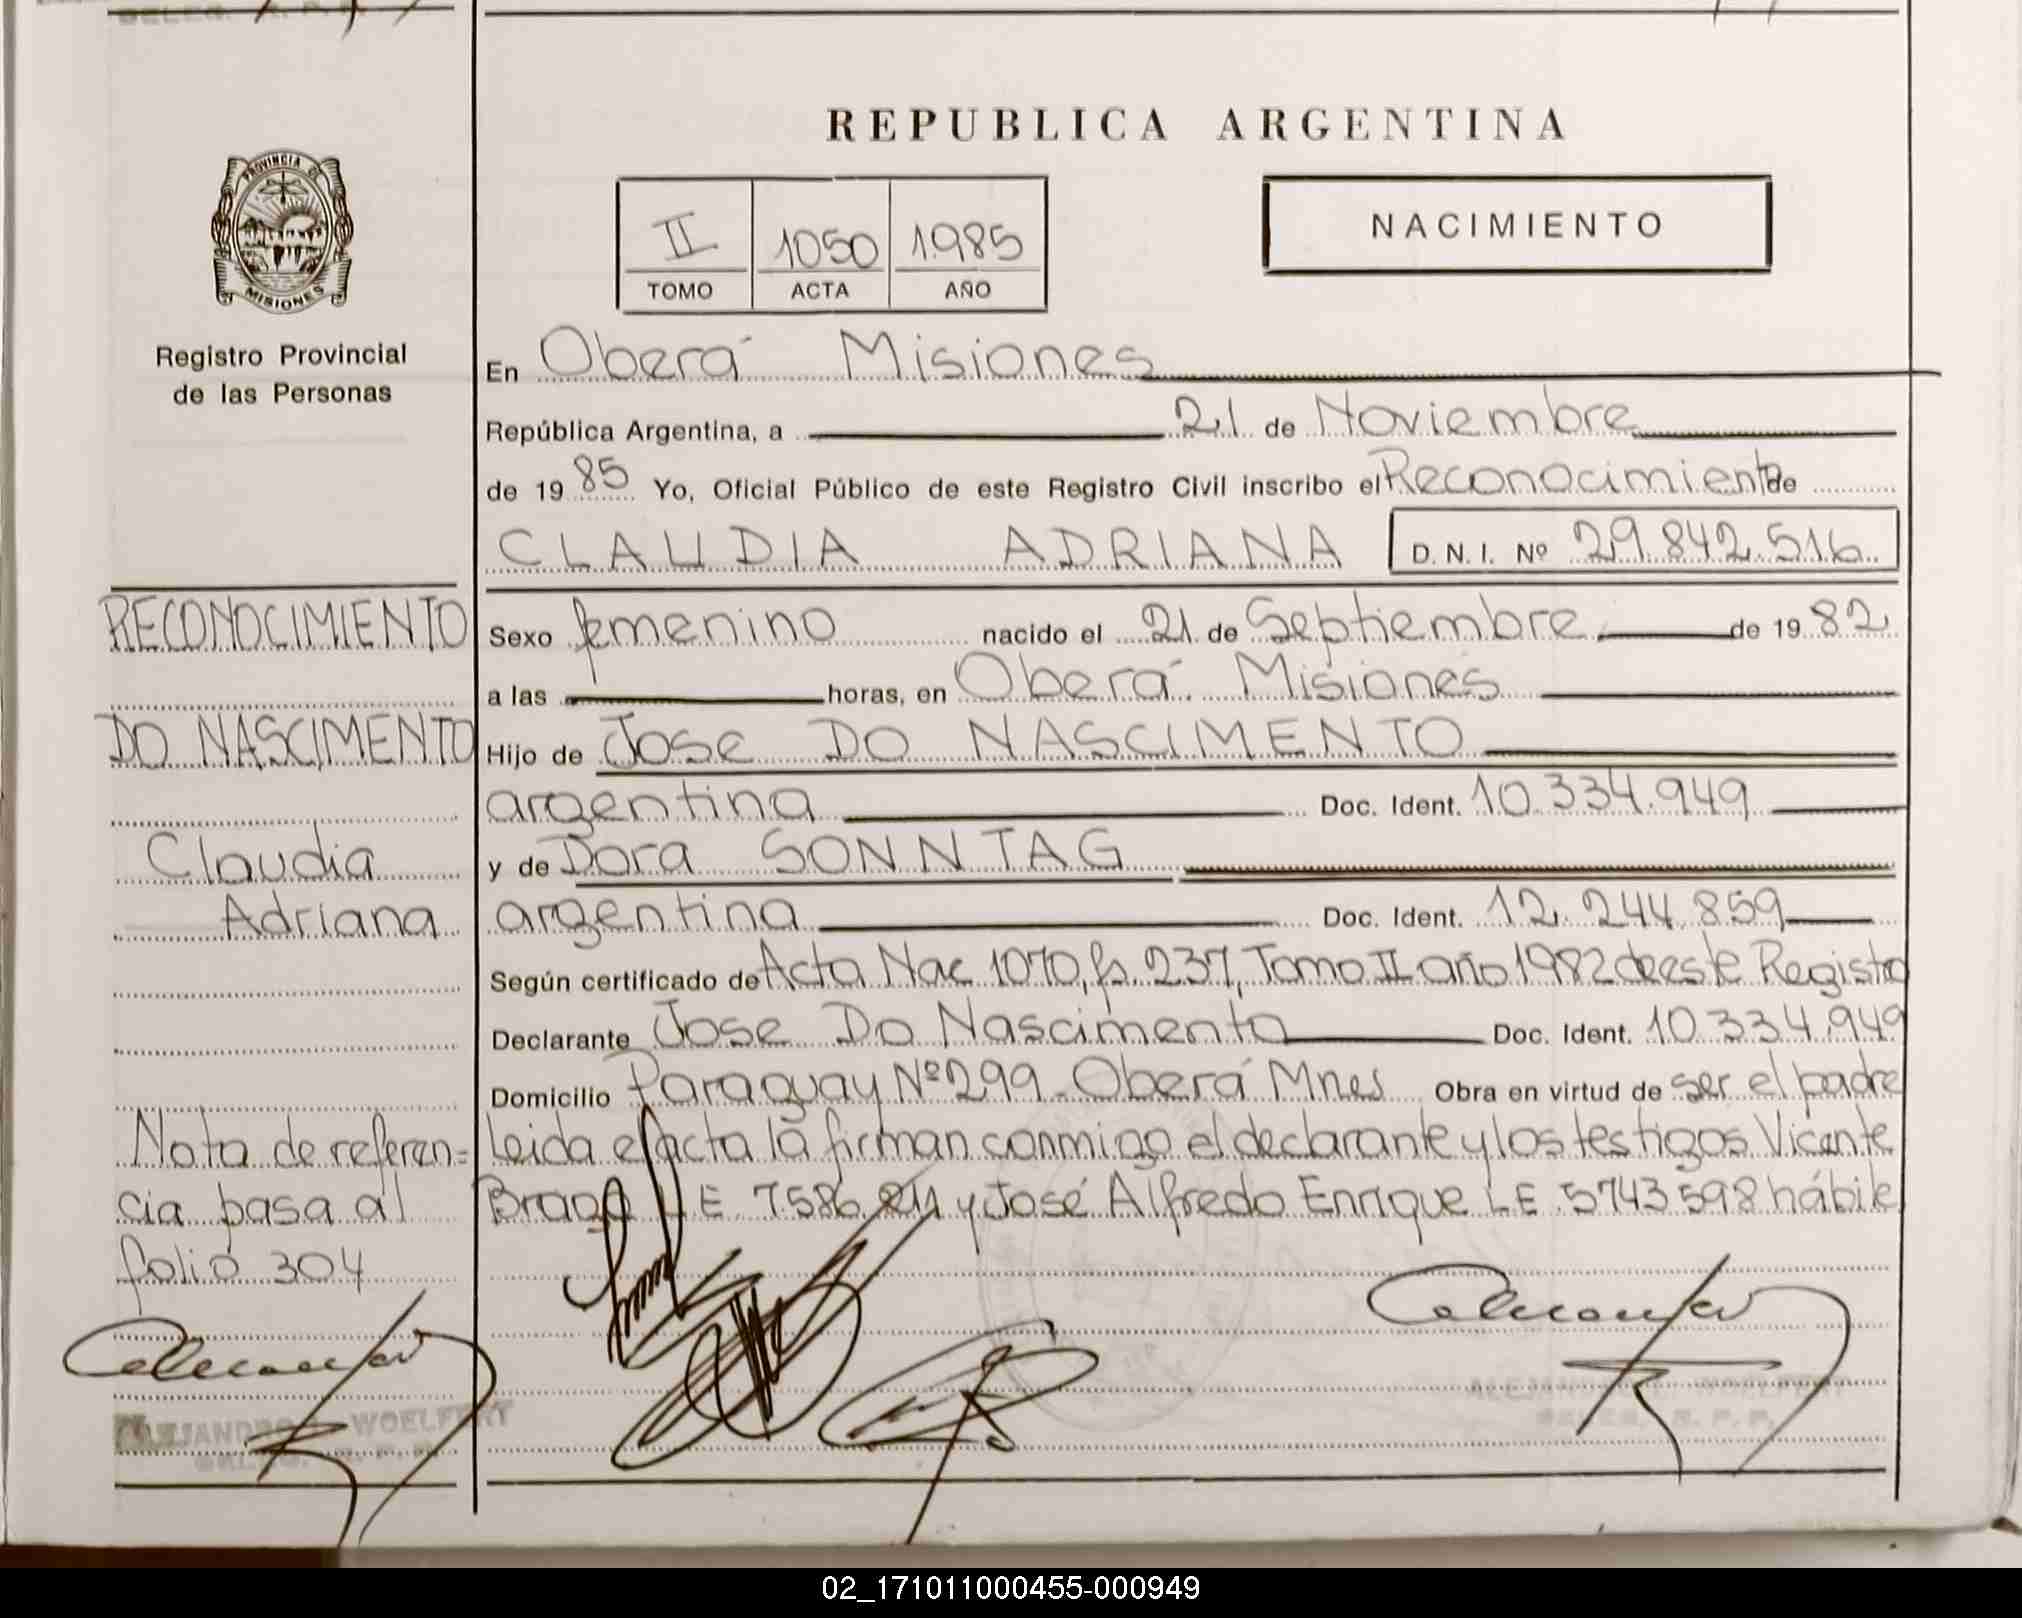 REPUBLICA ARGENTINA
PROVINCIA DE
MISIONES
Registro Provincial
de las Personas
II 1050 1985
TOMO ACTA AÑO
NACIMIENTO
En Oberá Misiones
República Argentina, a 21 de Noviembre
de 1985 Yo, Oficial Público de este Registro Civil inscribo el Reconocimiento de
CLAUDIA ADRIANA D.N.I. Nº 29.842.516
Sexo femenino nacido el 21 de Septiembre de 1982
a las horas, en Oberá Misiones
Hijo de Jose DO NASCIMENTO
argentina Doc. Ident. 10.334.949
y de Dora SONNTAG
argentina Doc. Ident. 12.244.859
Según certificado de Acta Nac 1070, fs. 237, Tomo II año 1982 de este Registro
Declarante Jose Do Nascimento Doc. Ident. 10.334.949
Domicilio Paraguay Nº 299 - Oberá Mnes Obra en virtud de ser el padre
Leida el acta la firman conmigo el declarante y los testigos Vicente
LE 7.586 y José Alfredo Enrique LE 5743598 hábile
RECONOCIMIENTO
DO NASCIMENTO
Claudia
Adriana
Nota de referen=
cia pasa al
folio 304
WOELFERT
02_171011000455-000949